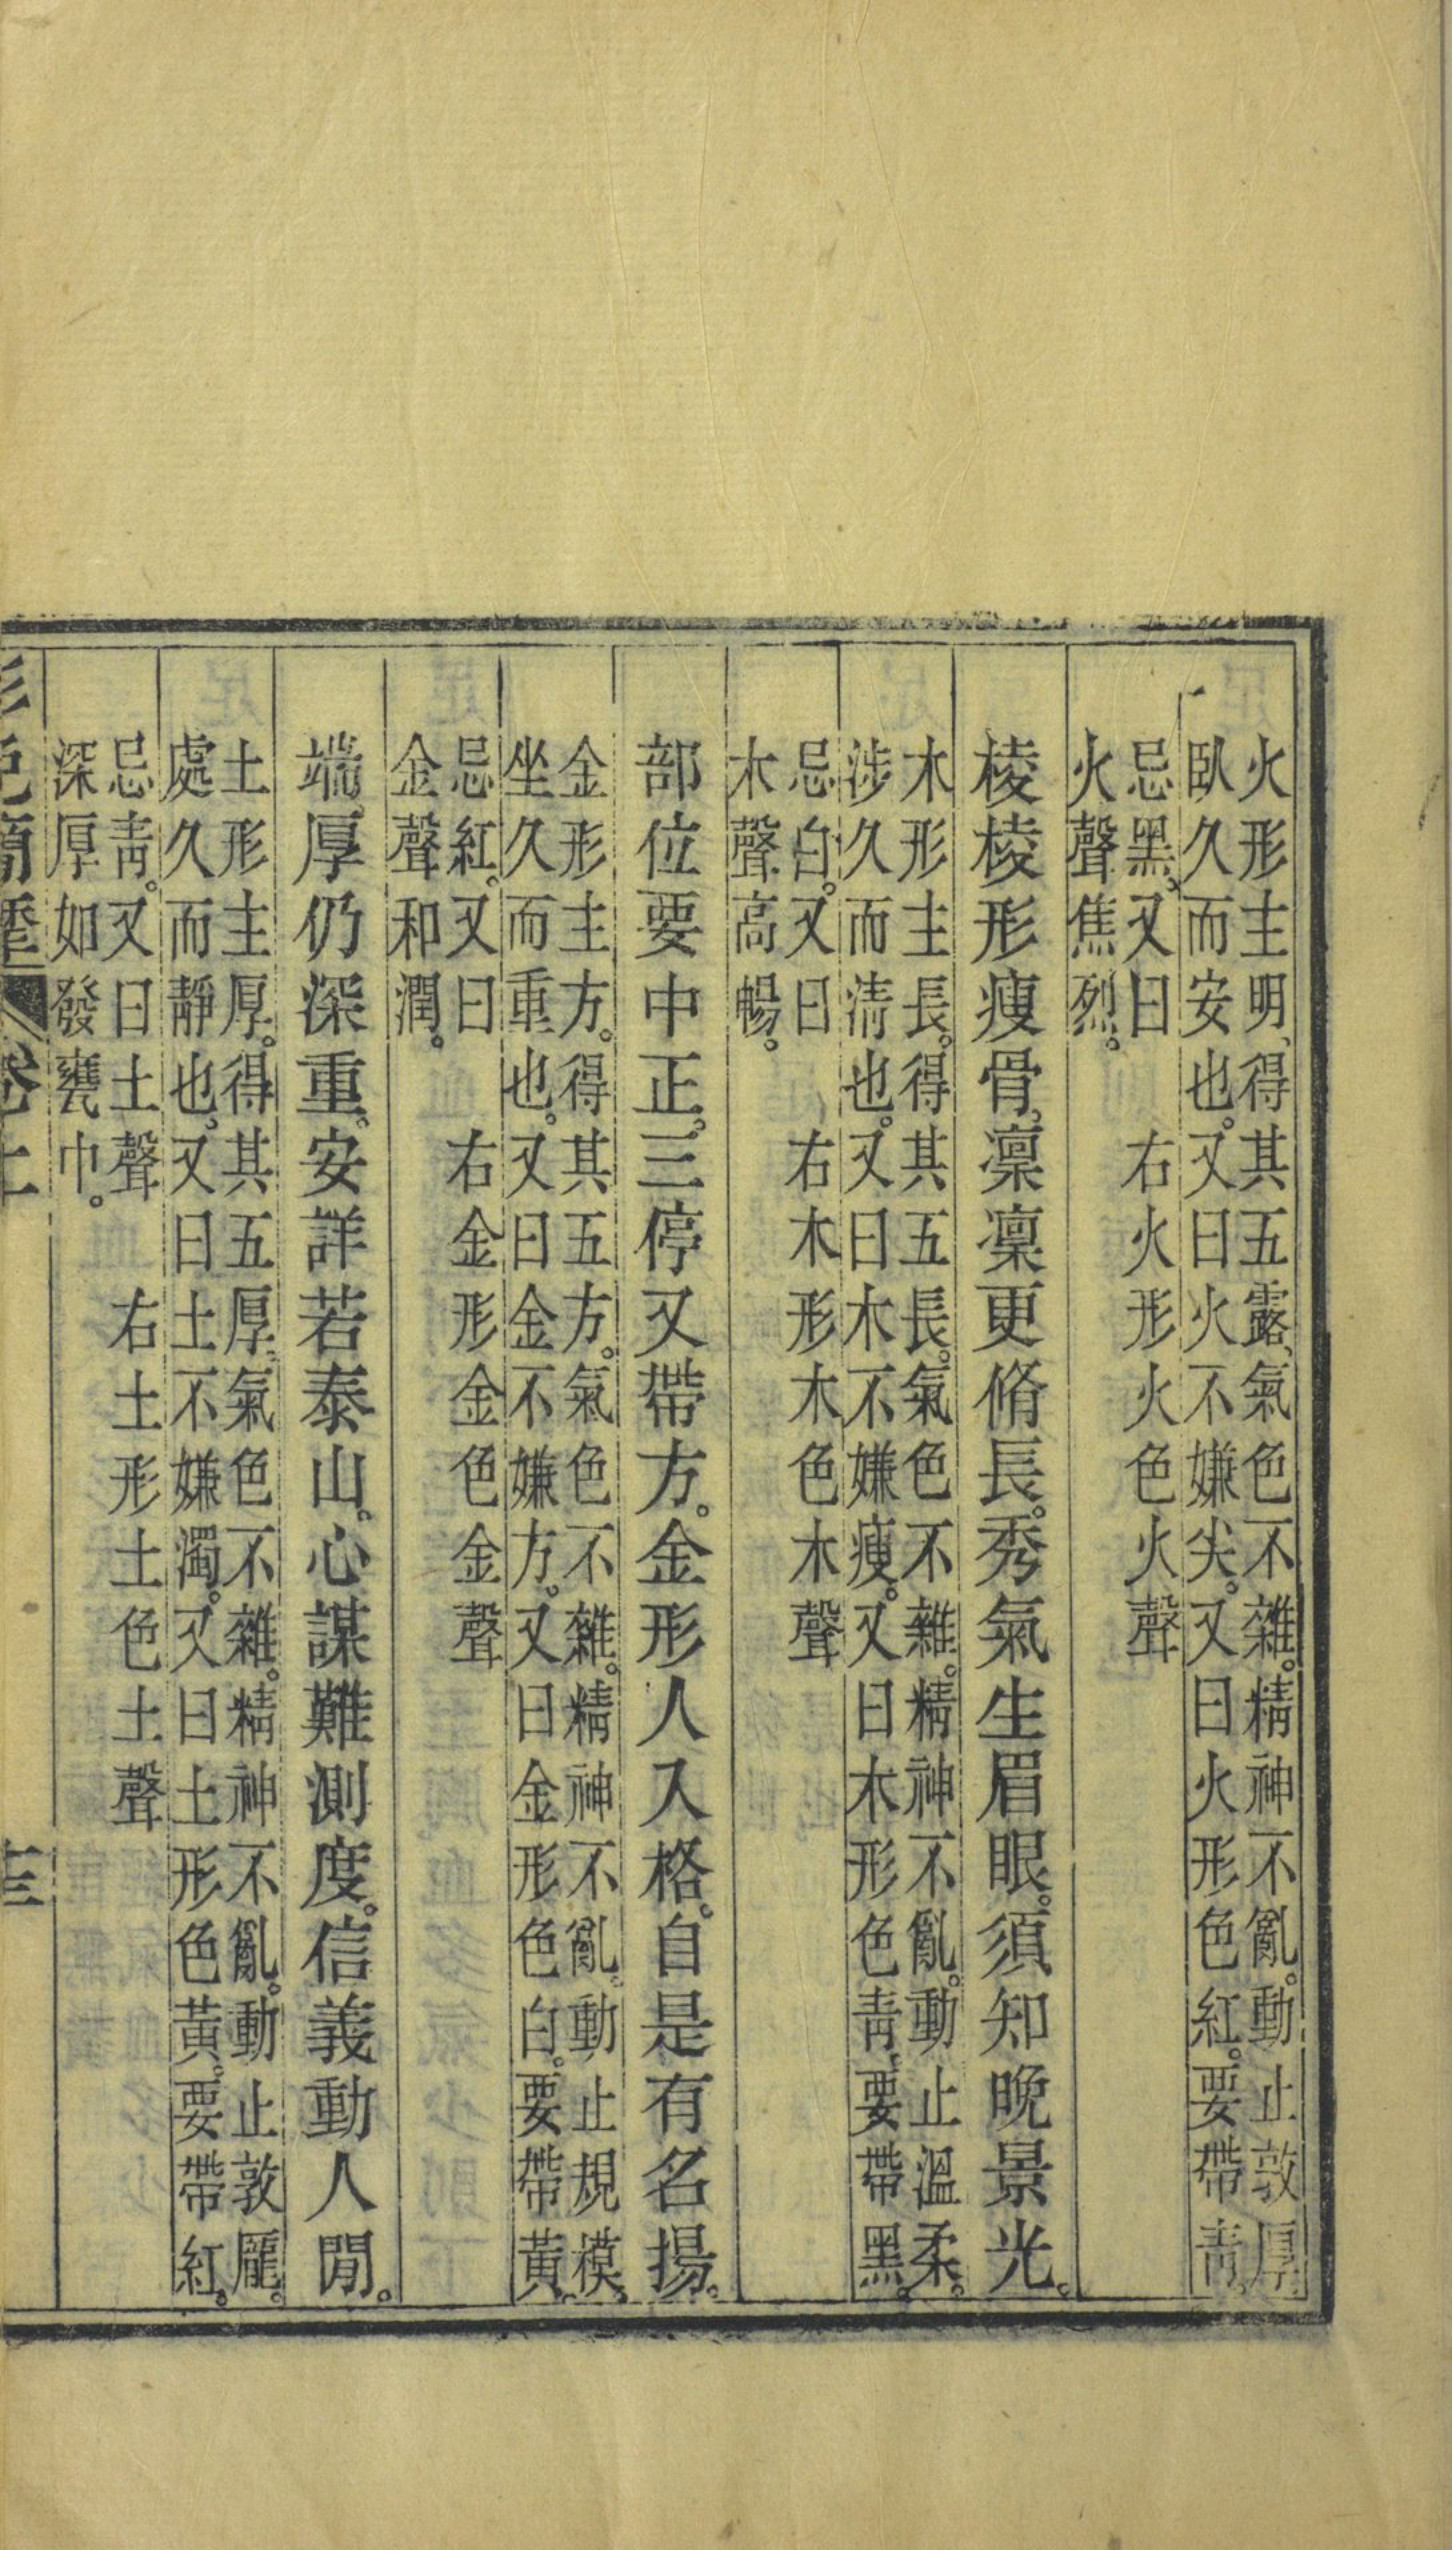 火形主明、得其五露、氣色不雜。精神不亂。動止敦厚。
臥久而安也。又曰火不嫌尖。又曰火形色紅。要帶靑。
忌黑。又曰　右火形火色火聲
火聲焦烈。
棱棱形瘦骨、凛凛更脩長。秀氣生眉眼。須知晚景光。
木形主長。得其五長。氣色不雜。精神不亂。動止溫柔。
涉久而淸也。又曰木不嫌瘦。又曰木形色靑。要帶黑。
忌白。又曰　右木形木色木聲
木聲高暢。
部位要中正。三停又帶方。金形人入格。自是有名揚。
金形主方。得其五方。氣色不雜。精神不亂。動止規模。
坐久而重也。又曰金不嫌方。又曰金形色白。要帶黃。
忌紅。又曰　右金形金色金聲
金聲和潤。
端厚仍深重。安詳若泰山。心謀難測度。信義動人閒。
土形主厚。得其五厚。氣色不雜。精神不亂。動止敦龐。
處久而靜也。又曰土不嫌濁。又曰土形色黃。要帶紅。
忌靑。又曰土聲　右土形土色土聲
深厚如發甕巾。
卷上
十三